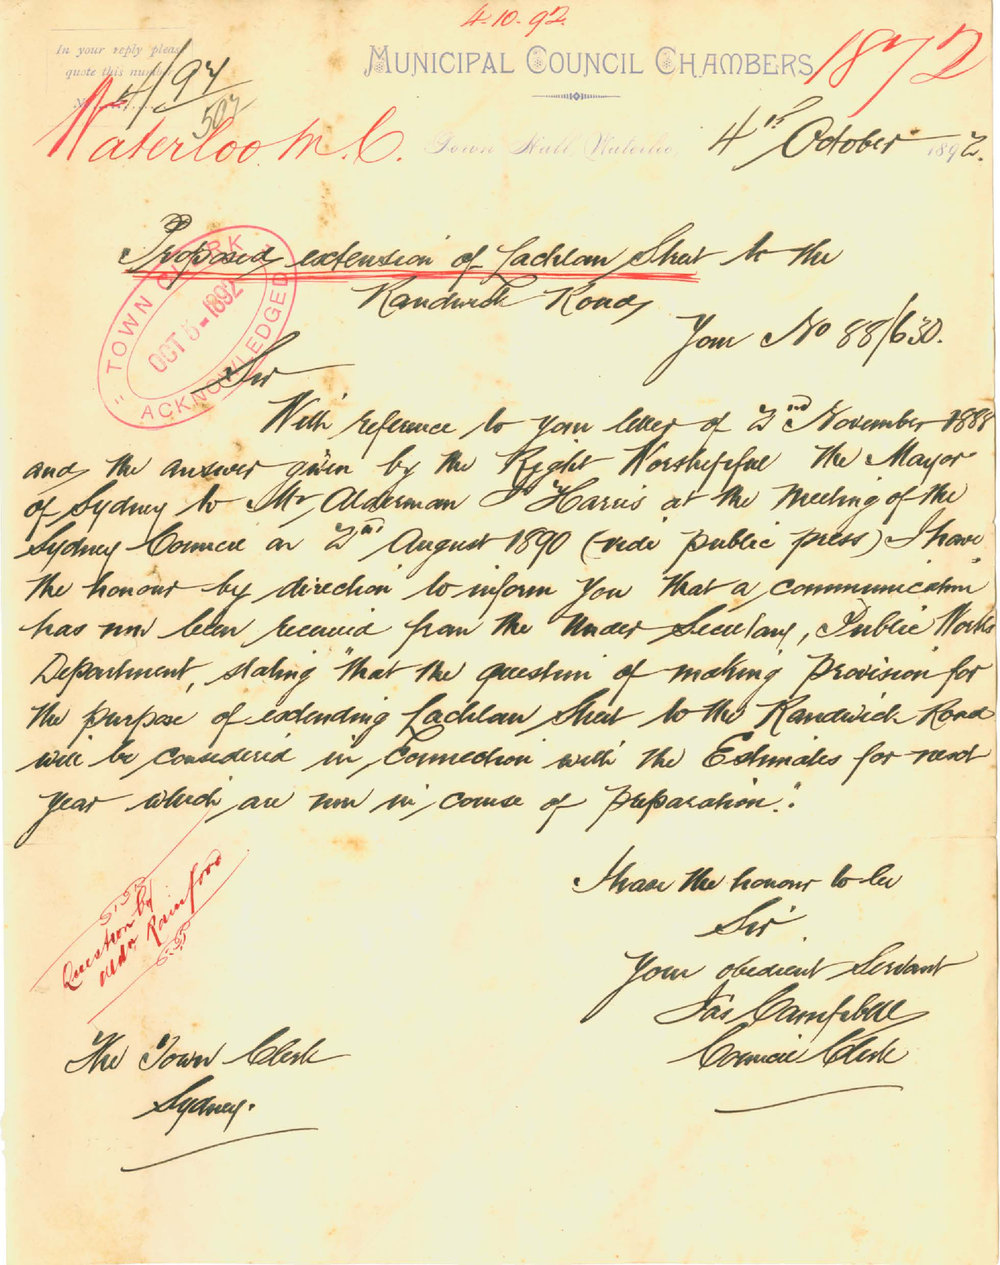 4.10.92.
In your reply please
quote this number
4/97
507
MUNICIPAL COUNCIL CHAMBERS
1872
Waterloo. M. C.
Town Hall, Waterloo,
4th October 1892.
Proposed extension of Lachlan Street to the
Randwick Road
TOWN CLERK
OCT 5-1892
ACKNOWLEDGED
Your No 88/630.
Sir
With reference to your letter of 2nd November 1888
and the answer given by the Right Worshipful the Mayor
of Sydney to Mr Alderman Harris at the meeting of the
Sydney Council on 2nd August 1890 (vide public press) I have
the honour by direction to inform you that a communication
has now been received from the Under Secretary, Public Works
Department, stating "that the question of making provision for
the purpose of extending Lachlan Street to the Randwick Road
will be considered in connection with the Estimates for next
year which are now in course of preparation."
Question by
Aldn Rainford
I have the honour to be
Sir
Your obedient Servant
Jas Campbell
Council Clerk
The Town Clerk
Sydney.